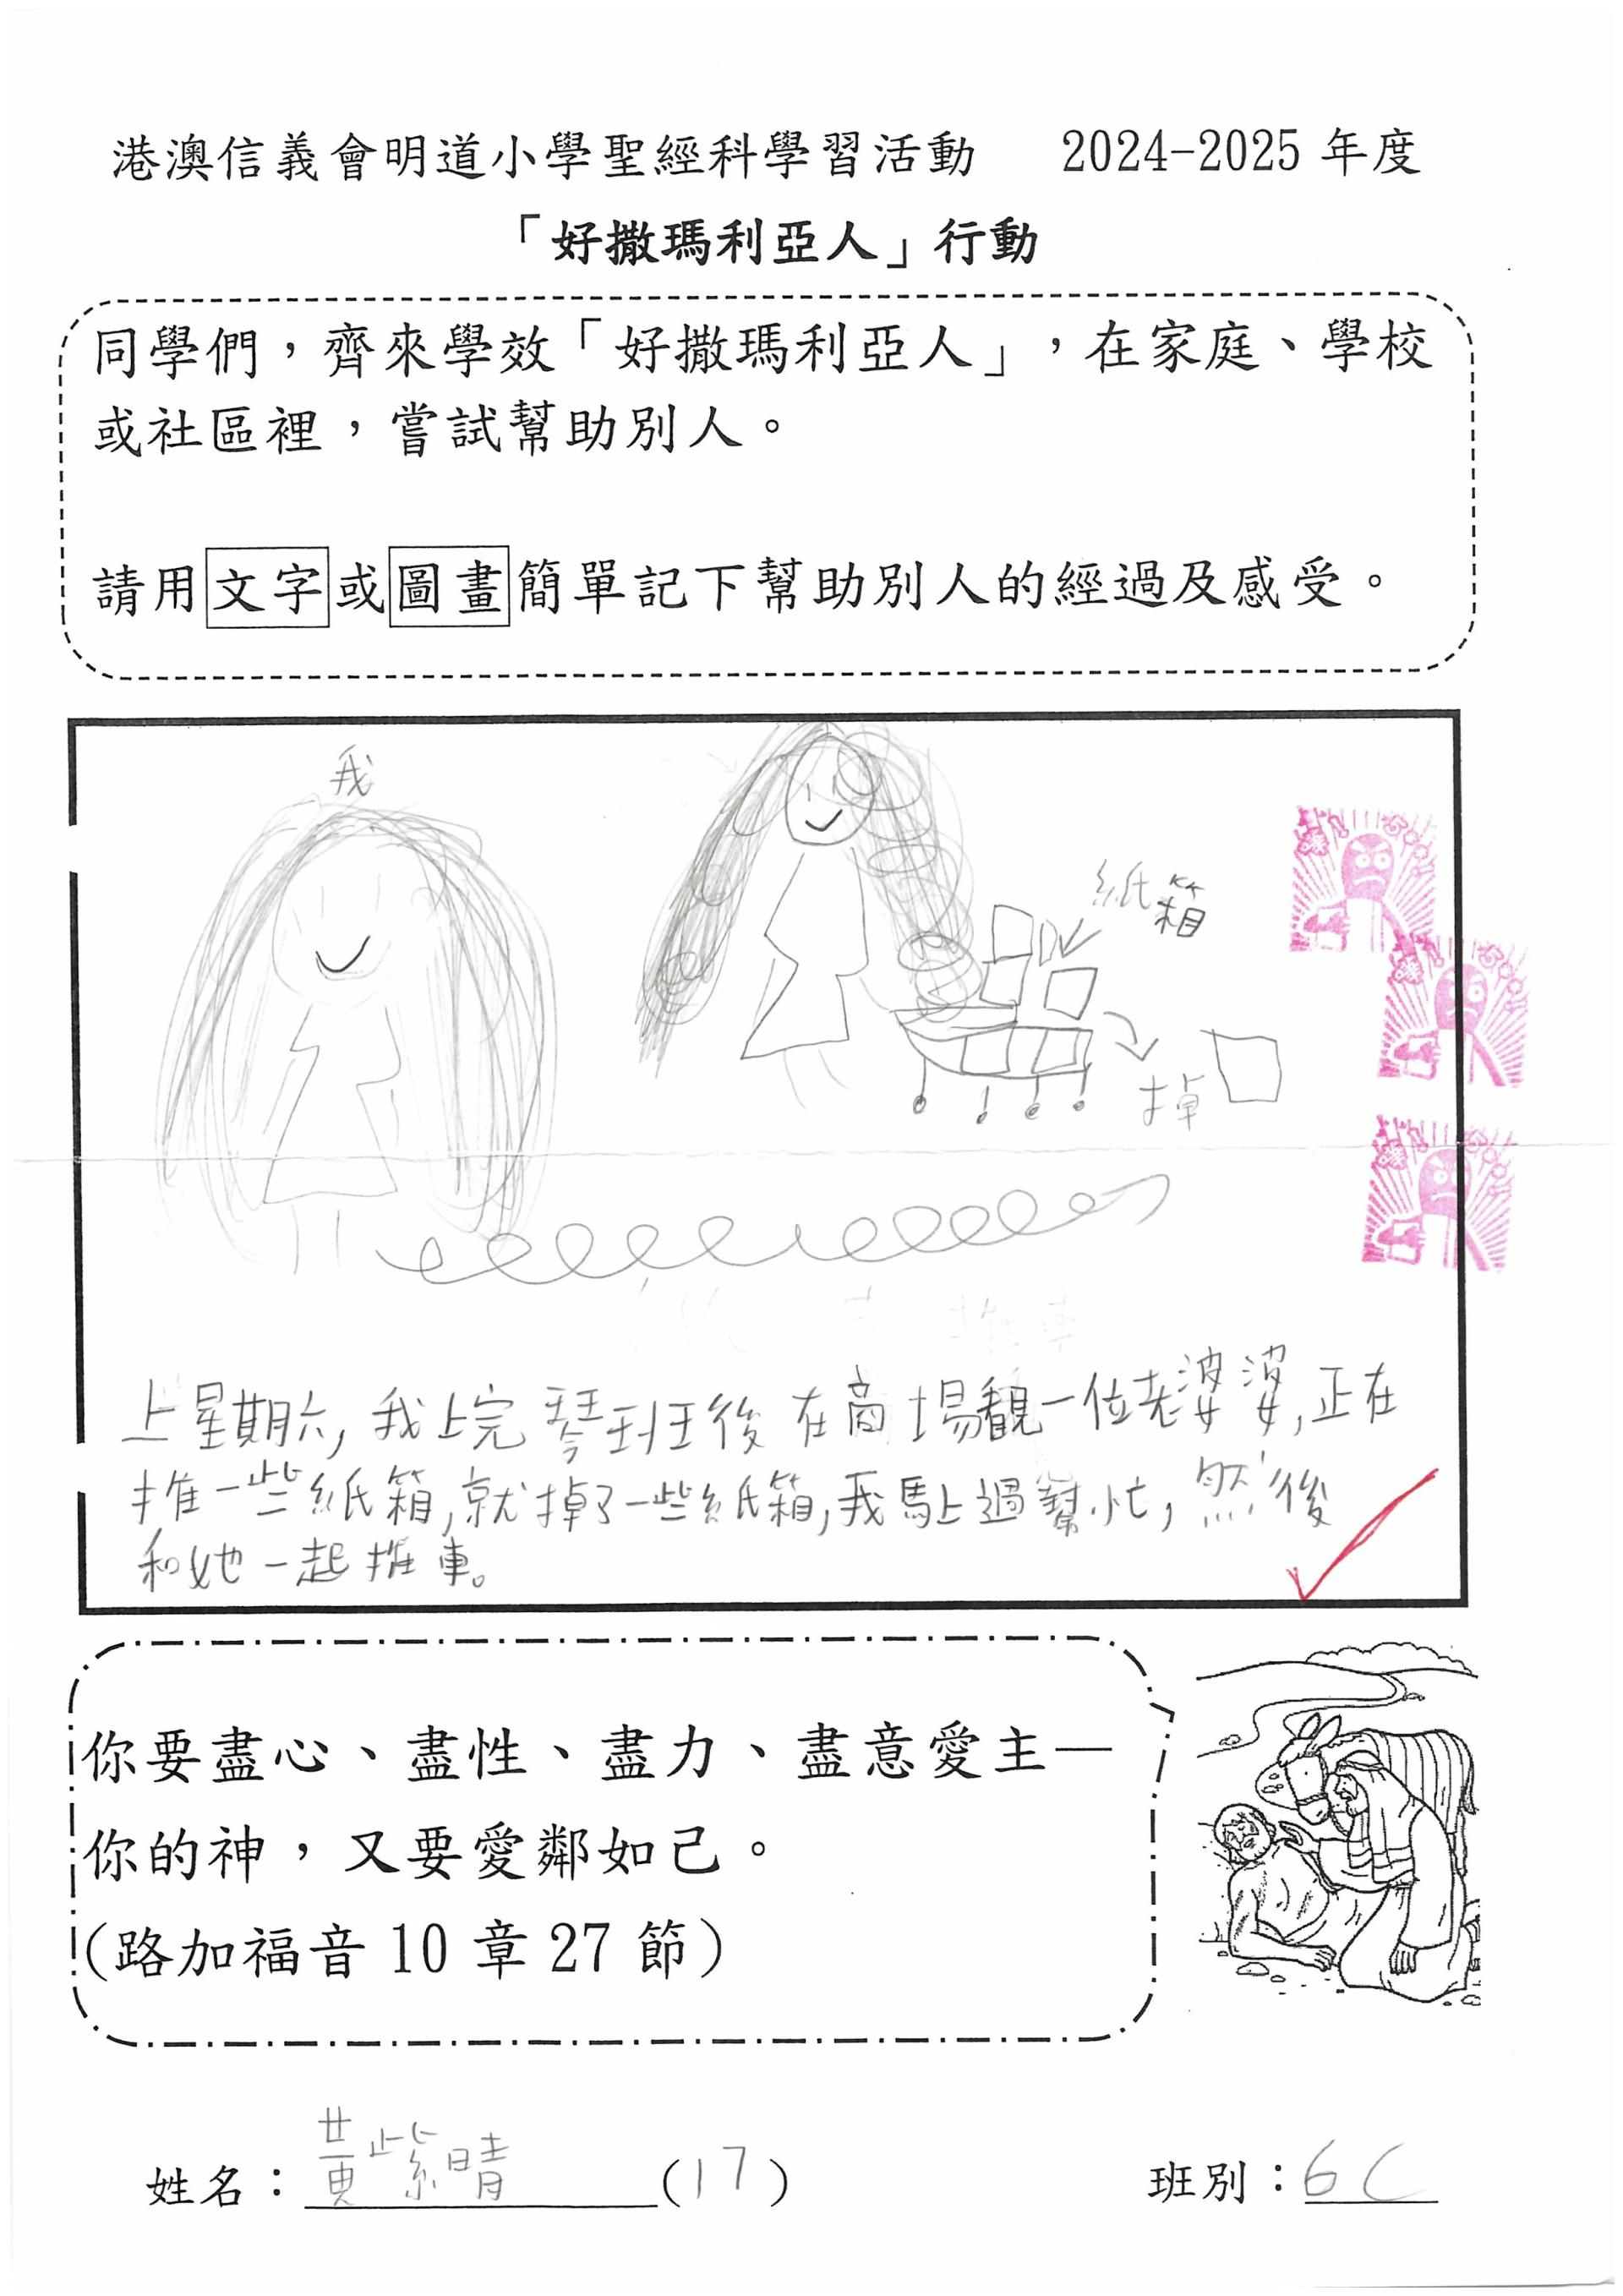 港澳信義會明道小學聖經科學習活動 2024-2025 年度
「好撒瑪利亞人」行動
同學們，齊來學效「好撒瑪利亞人」，在家庭、學校
或社區裡，嘗試幫助別人。
請用文字或圖畫簡單記下幫助別人的經過及感受。
我
紙箱
掉
上星期六,我上完琴班後在商場觀一位老婆婆,正在
推一些紙箱,就掉了一些紙箱,我馬上過幫忙,然後
和她一起推車。
你要盡心、盡性、盡力、盡意愛主—
你的神，又要愛鄰如己。
(路加福音 10 章 27 節)
姓名：黃紫晴(17) 班別：6C